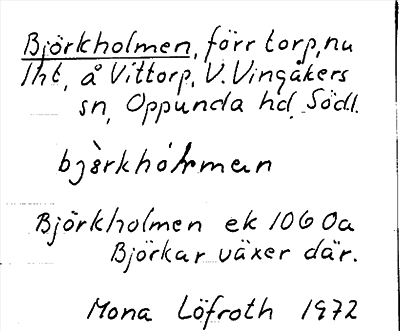 Björkholmen, förr torp, nu
lht, å Vittorp, V. Vingåkers
sn, Oppunda hd, Södl.
Björkholmen ek 10G 0a
Björkar växer där.
Mona Löfroth 1972